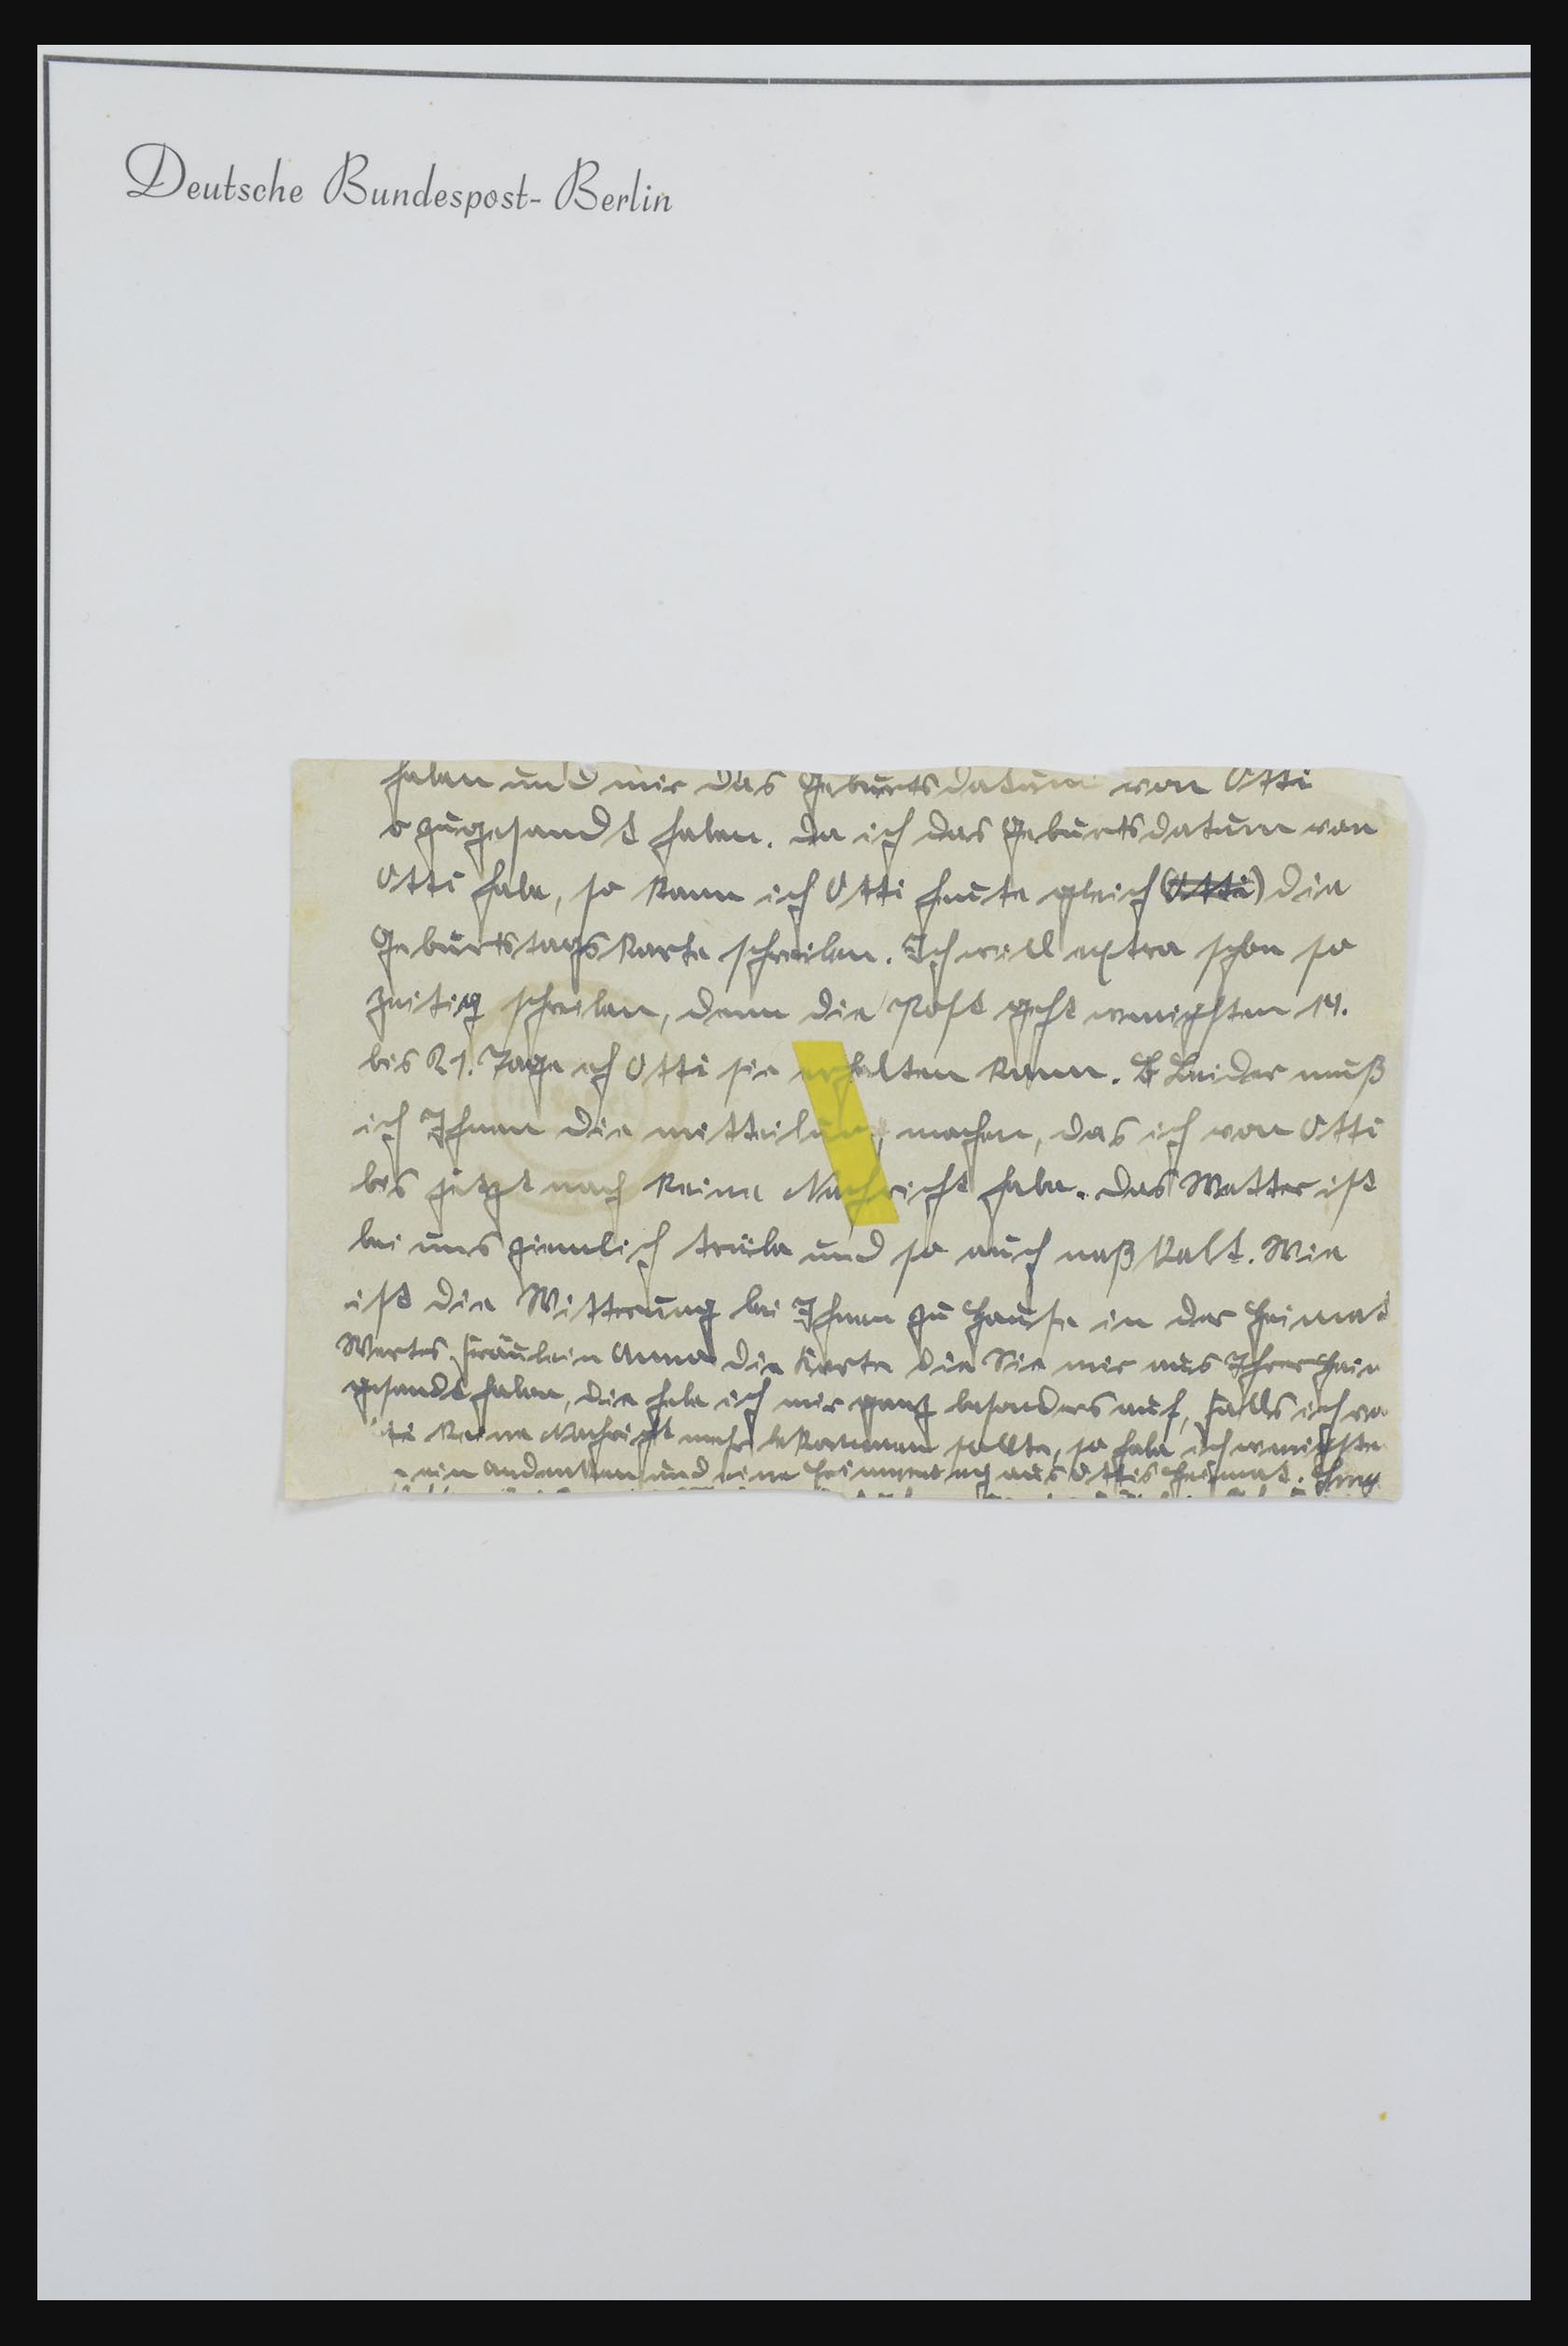 Deutsche Bundespost-Berlin
haben und mir das Geburtsdatum von Otti
zugesandt haben. Da ich das Geburtsdatum von
Otti habe, so kann ich Otti heute gleich (Otti) die
Geburtstagskarte schreiben. Ich will extra schon so
zeitig schreiben, denn die Post geht wenigsten 14.
bis 21. Tage eh Otti sie erhalten kann. Leider muß
ich Ihnen die mitteilung machen, das ich von Otti
bis jetzt noch keine Nachricht habe. Das Wetter ist
bei uns ziemlich trübe und so auch naß kalt. Wie
ist die Witterung bei Ihnen zu Hause in der Heimat
Wertes Fräulein Anna die Karte die Sie mir aus Ihrer Heim
gesandt haben, die hebe ich mir ganz besonders auf, falls ich vo
ti keine Nachricht mehr bekommen sollte, so habe ich wenigste
ein Andenken und eine aus Ottis Heimat.